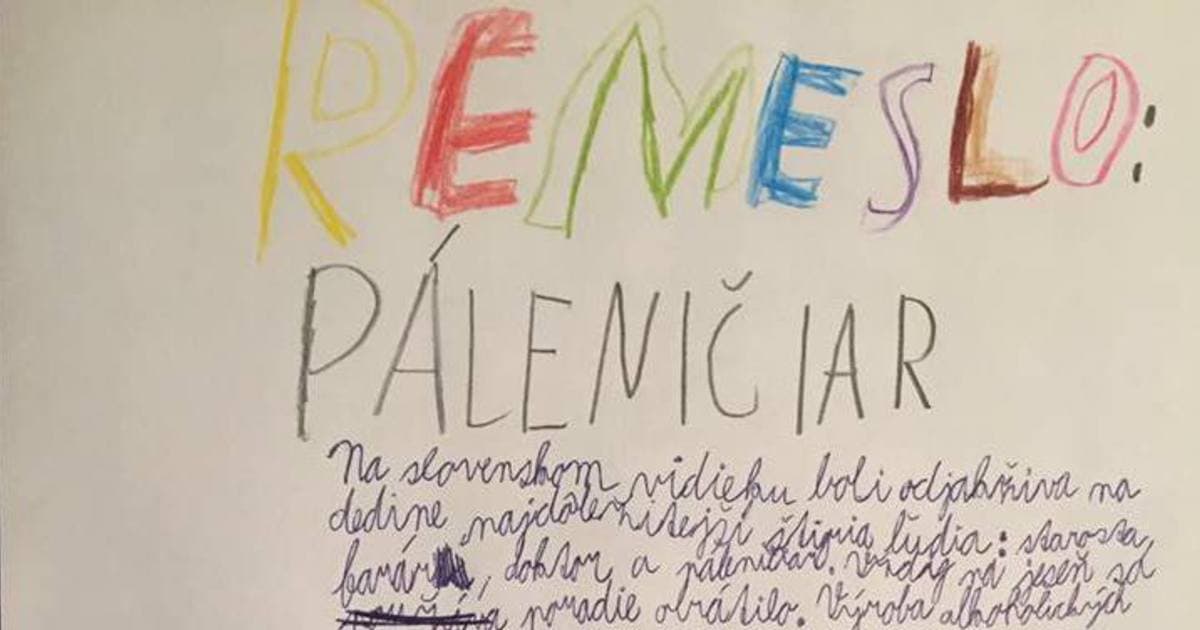 REMESLO:
PÁLENIČIAR
Na slovenskom vidieku boli odjakživa na
dedine najdôležitejší štyria ľudia: starosta,
farár, doktor a páleničiar. Vždy na jeseň sa
poradie obrátilo. Výroba alkoholických